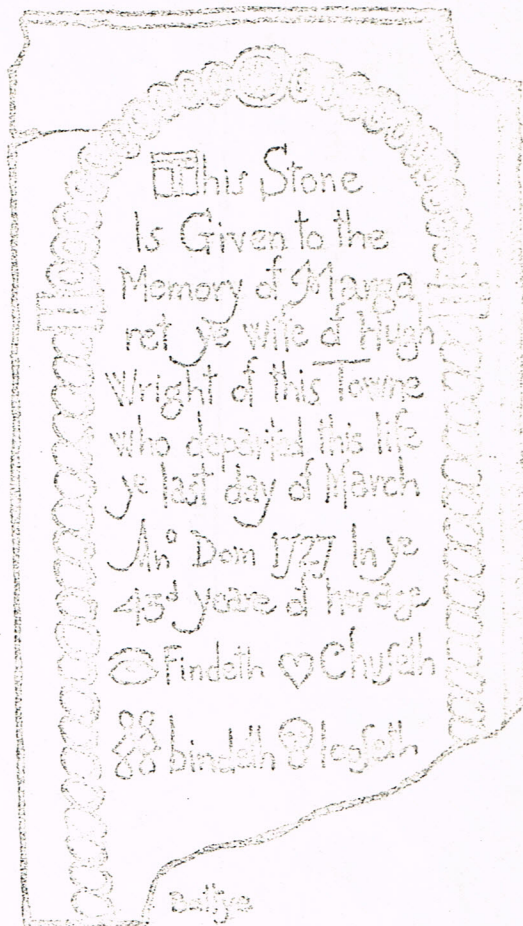 This Stone
Is Given to the
Memory of Marga
ret ye wife of Hugh
Wright of this Towne
who departed this life
ye last day of March
Ano Dom 1727 In ye
43d yeare of her age
Findeth Chuseth
bindeth loseth